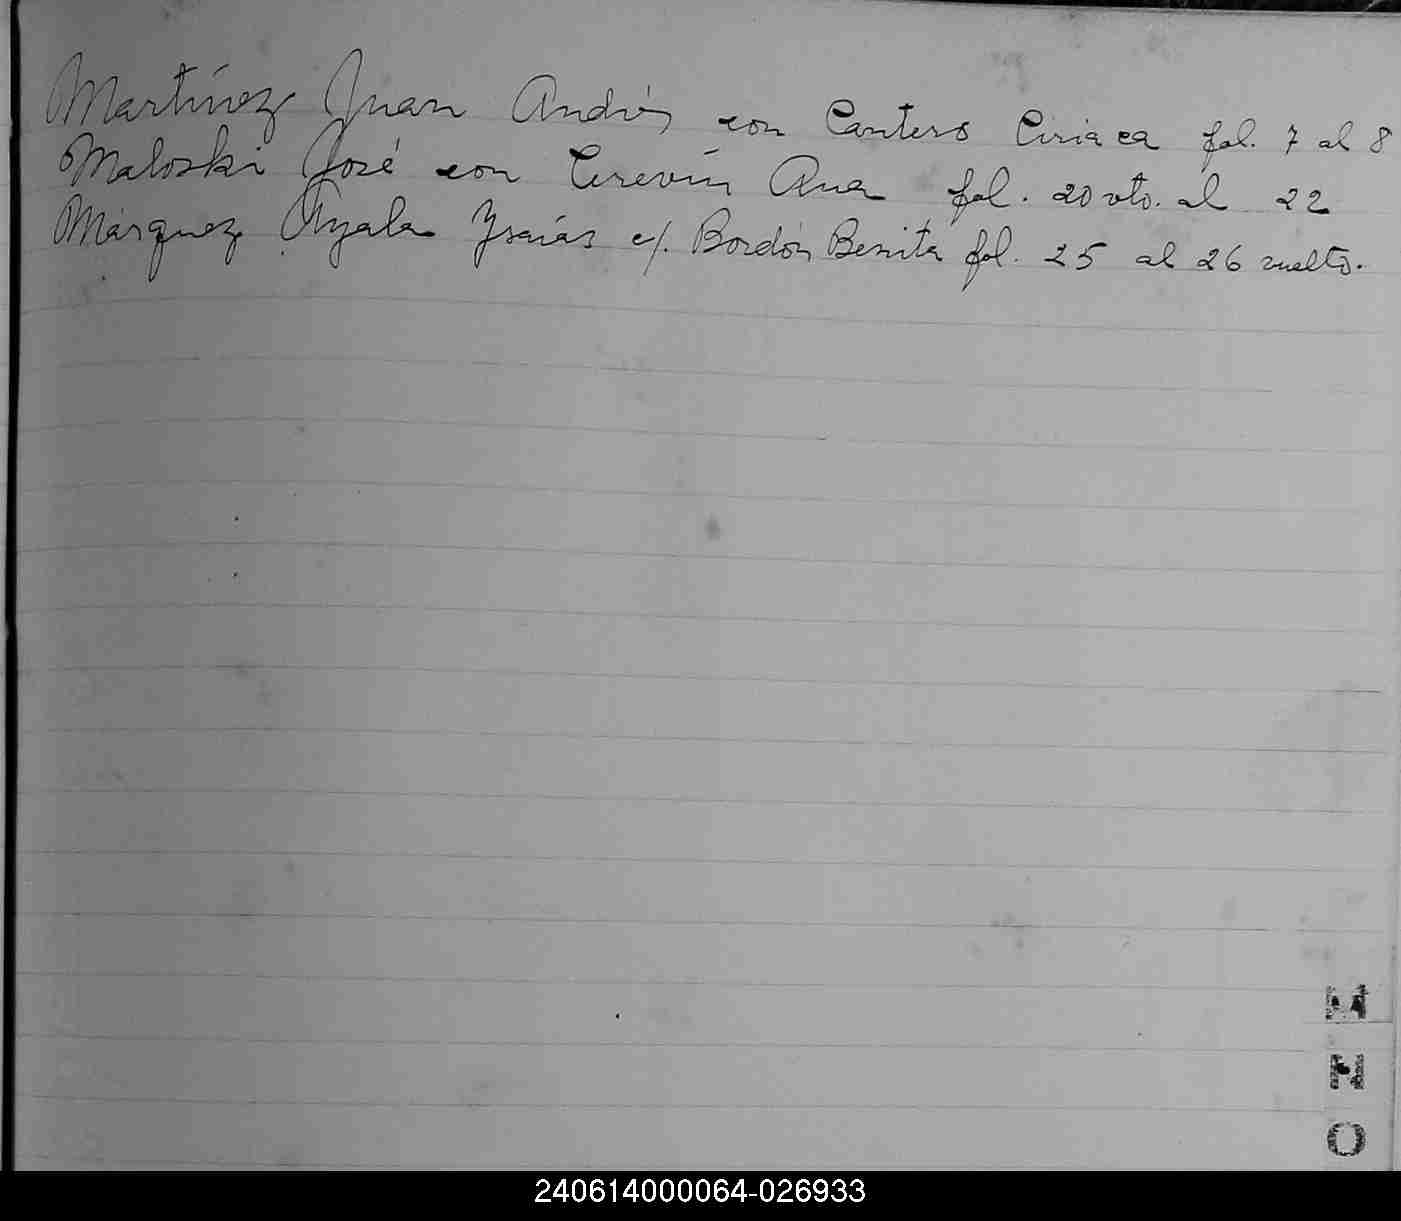 Martínez Juan Andrés con Cantero Ciriaca fol. 7 al 8
Maloski José con Cerevin Ana fol. 20 vto. al 22
Márquez Ayala Ysaías c/. Bordón Benita fol. 25 al 26 vuelto.
M
N
O
240614000064-026933